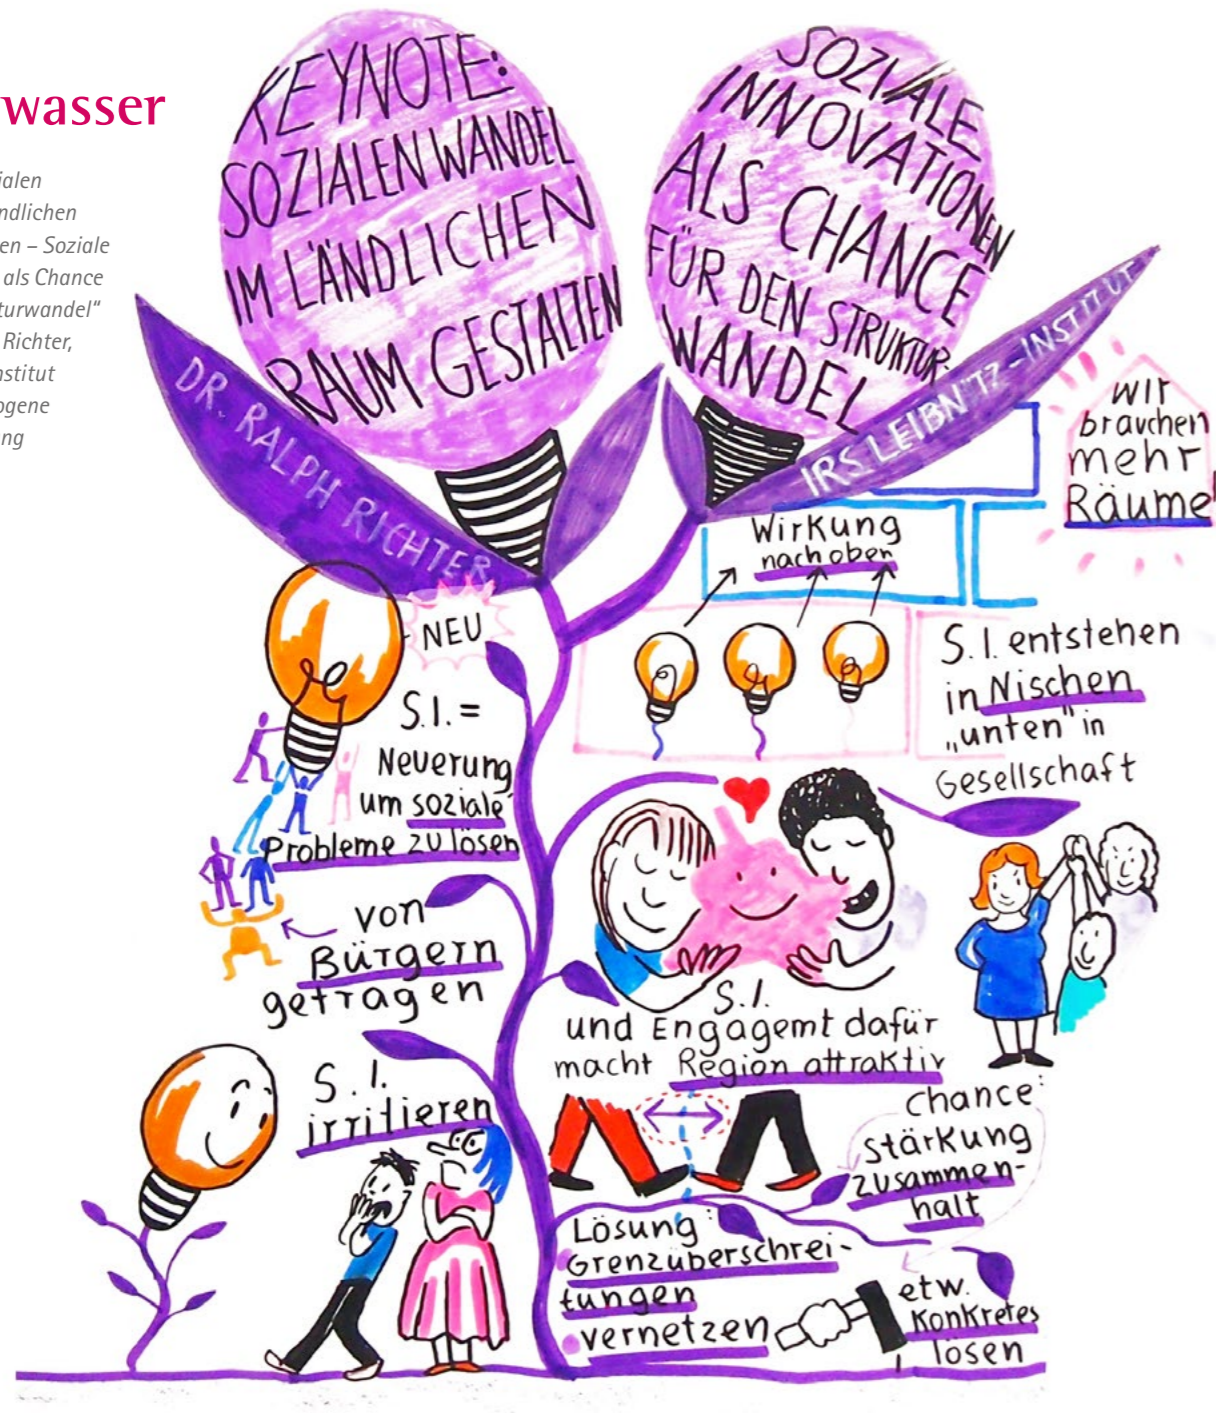 wasser
ialen
ndlichen
en – Soziale
als Chance
turwandel“
Richter,
nstitut
ogene
ng
KEYNOTE:
SOZIALEN WANDEL
IM LÄNDLICHEN
RAUM GESTALTEN
SOZIALE
INNOVATIONEN
ALS CHANCE
FÜR DEN STRUKTUR-
WANDEL
DR. RALPH RICHTER
IRS LEIBNITZ-INSTITUT
wir
brauchen
mehr
Räume
Wirkung
nach oben
NEU
S.I. =
Neuerung
um soziale
Probleme zu lösen
von
Bürgern
getragen
S.I. entstehen
in Nischen
„unten“ in
Gesellschaft
S.I.
und Engagemt dafür
macht Region attraktiv
S.I.
irritieren
Chance:
stärkung
zusammen-
halt
Lösung:
Grenzüberschrei-
tungen
vernetzen
etw.
Konkretes
lösen